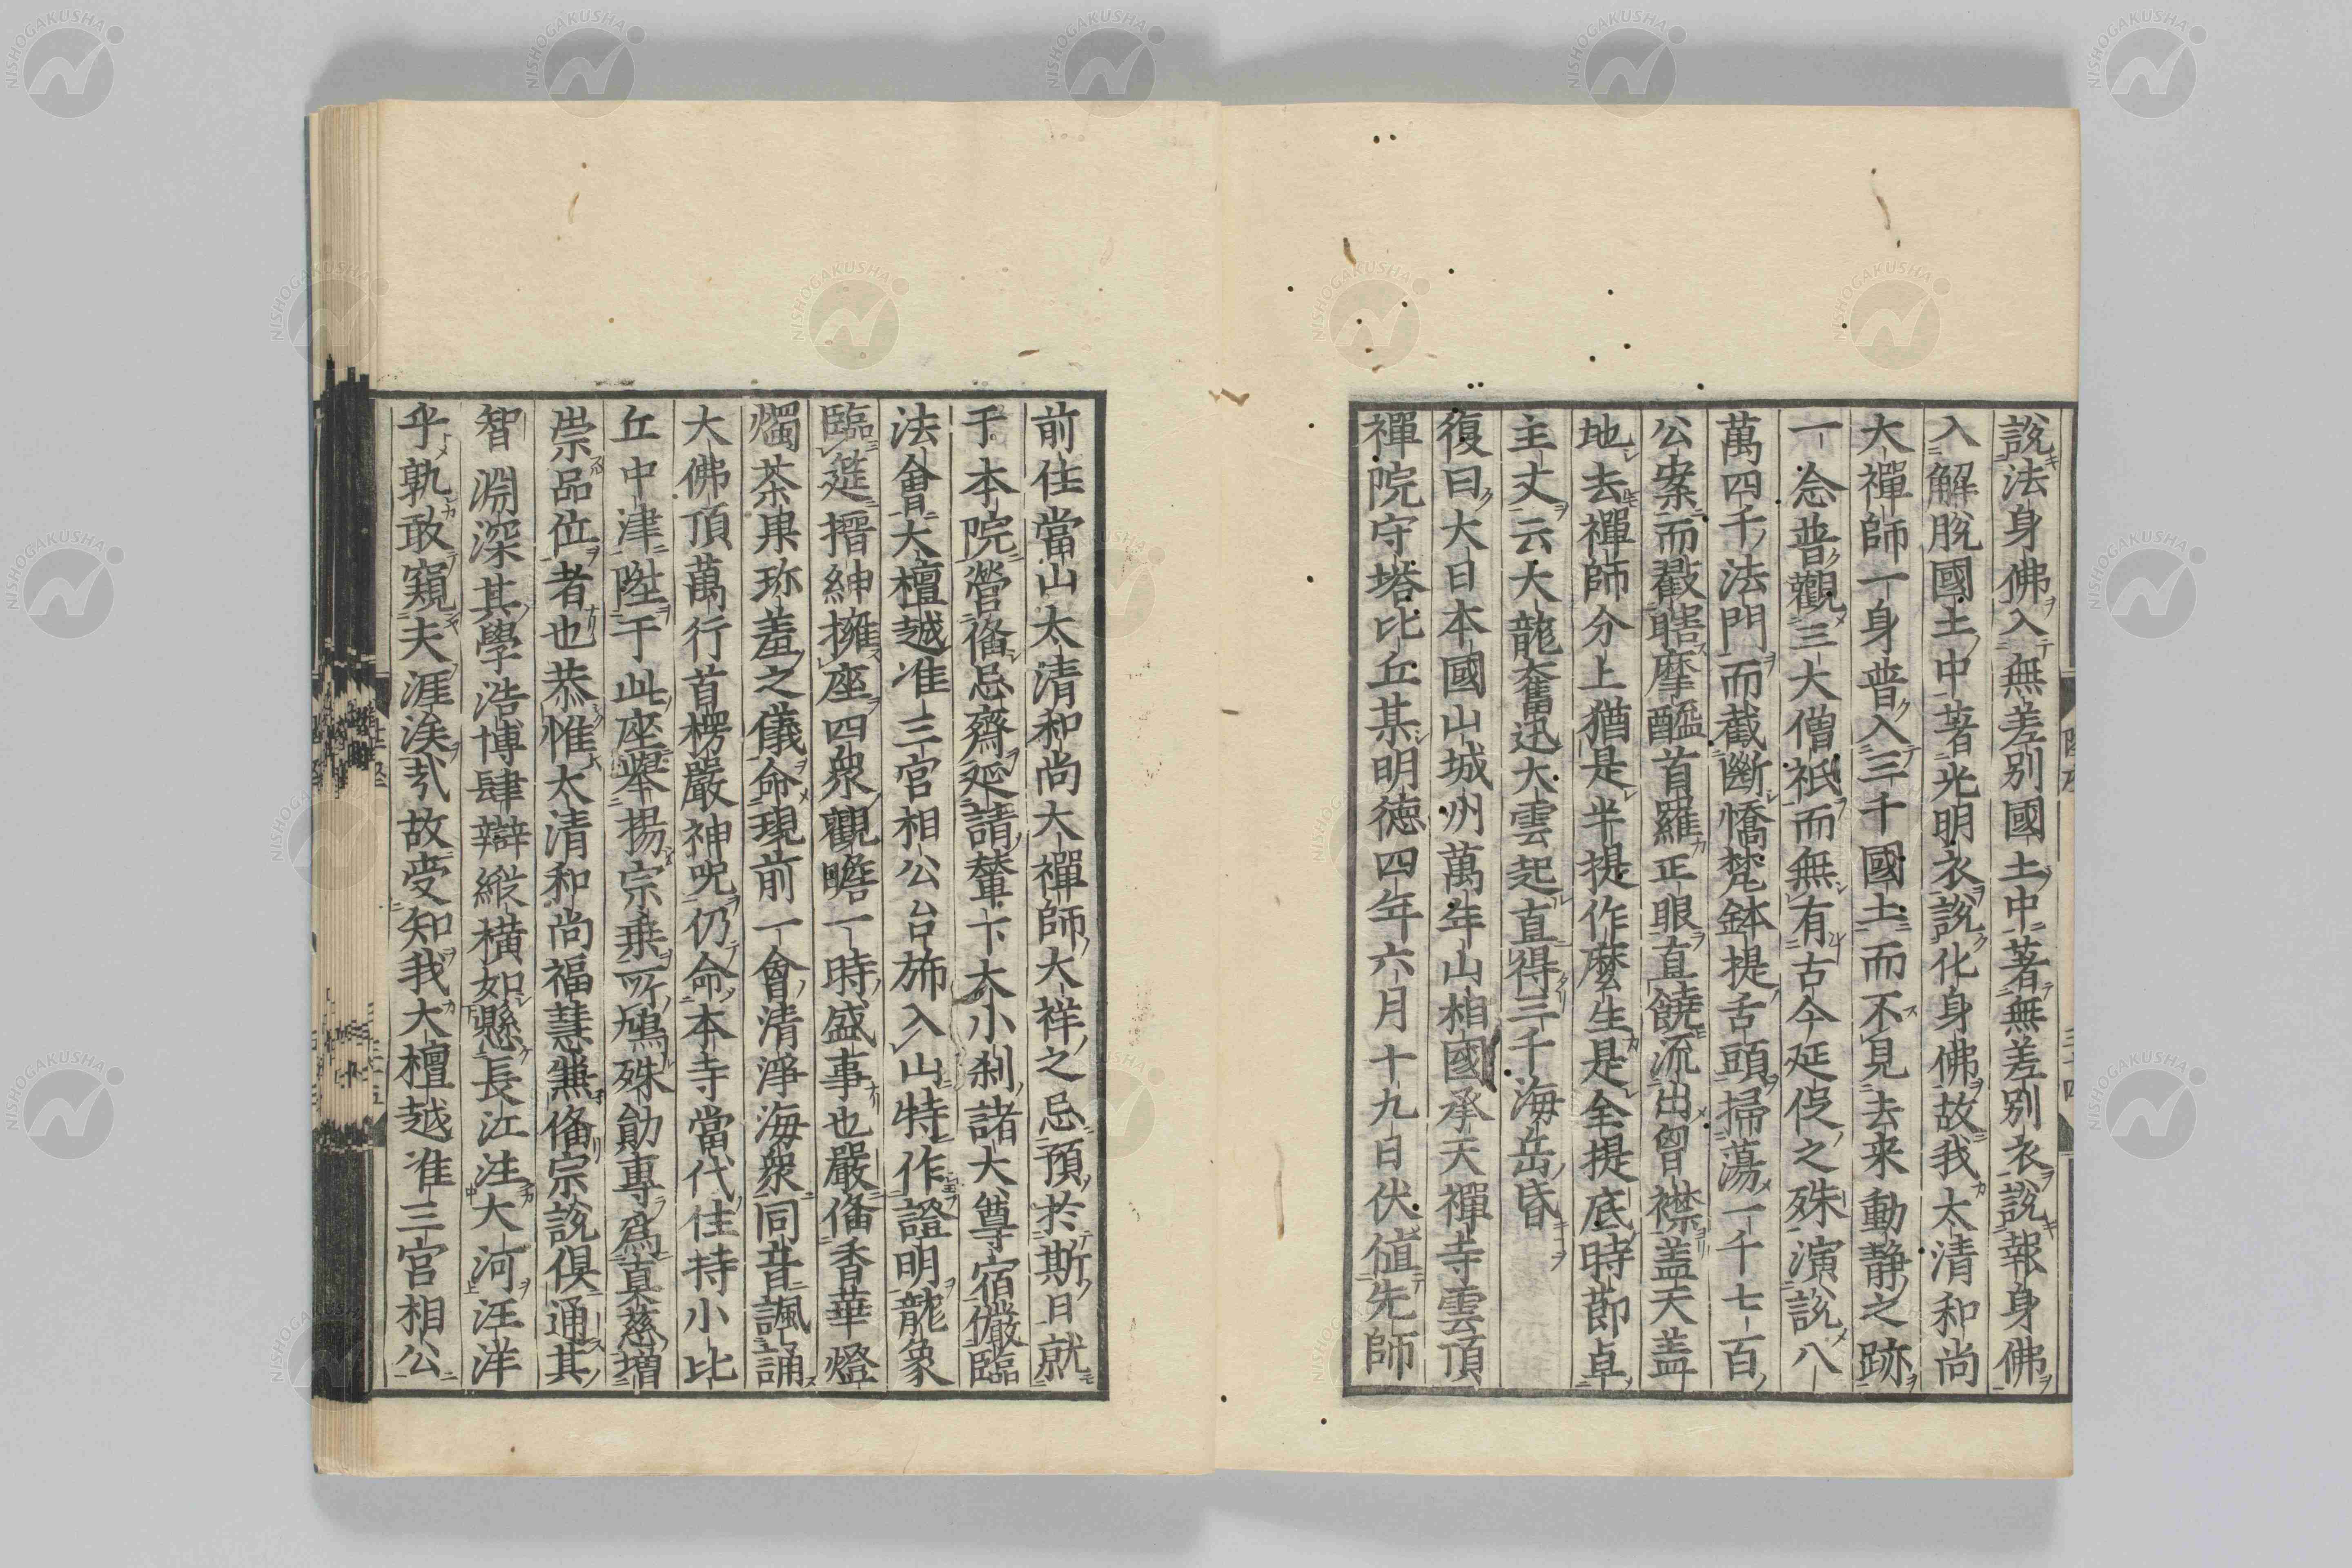 説法身佛入無差别國土中著無差别衣説報身佛
入解脱國土中著光明衣説化身佛故我太清和尚
大禪師一身普入三千國土而不見去来動静之跡
一念普觀三大僧祇而無有古今延促之殊演説八
萬四千法門而截斷憍梵鉢提舌頭掃蕩一千七百
公案而㪣瞎摩醯首羅正眼直饒流出胷襟盖天盖
地去禪師分上猶是半提作麼生是全提底時節卓
主丈云大龍奮迅大雲起直得三千海岳昏
復曰大日本國山城州萬年山相國承天禪寺雲頂
禪院守塔比丘某明徳四年六月十九日伏值先師
前住當山太清和尚大禪師大祥之忌預於斯日就
于本院營俻忌齋延請輦下大小刹諸大尊宿儼臨
法會大檀越准三宮相公台斾入山特作證明龍象
臨莚搢紳擁座四衆觀瞻一時盛事也嚴俻香華燈
燭茶果珎羞之儀命現前一會清淨海衆同音諷誦
大佛頂萬行首楞嚴神呪仍命本寺當代住持小比
丘中津陞于此座舉揚宗乗所鳩殊勛專爲真慈增
崇品位者也恭惟太清和尚福慧兼俻宗説俱通其
智淵深其學浩博肆辯縱横如懸長江注大河汪洋
乎孰敢窺夫涯涘哉故受知我大檀越准三宮相公